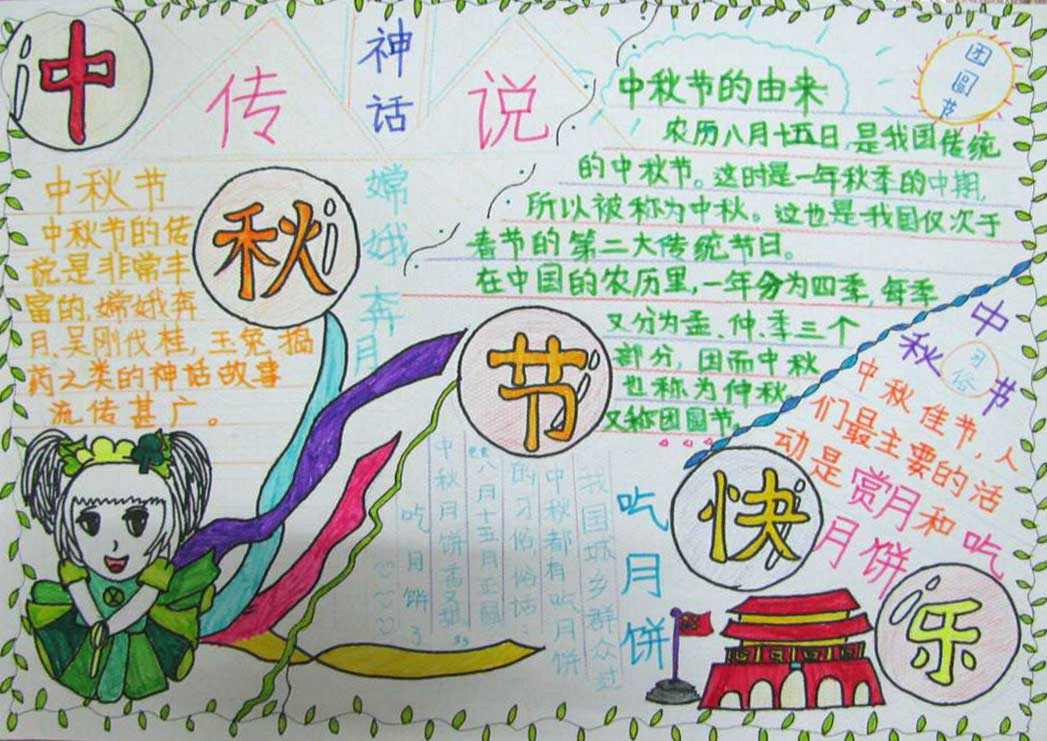 中
秋
节
快
乐
神
话
传 说
中秋节
中秋节的传
说是非常丰
富的,嫦娥奔
月、吴刚伐桂,玉兔捣
药之类的神话故事
流传甚广。
嫦娥奔月
中秋节的由来
农历八月十五日,是我国传统
的中秋节。这时是一年秋季的中期,
所以被称为中秋。这也是我国仅次于
春节的第二大传统节日。
在中国的农历里,一年分为四季,每季
又分为孟、仲、季三个
部分,因而中秋
也称为仲秋。
又称团圆节。
团圆节
中秋节
习俗
中秋佳节,人
们最主要的活
动是赏月和吃
月饼
吃月饼
我国城乡群众过
中秋都有吃月饼
的习俗俗话:
八月十五月正圆
中秋月饼香又甜
吃月饼了